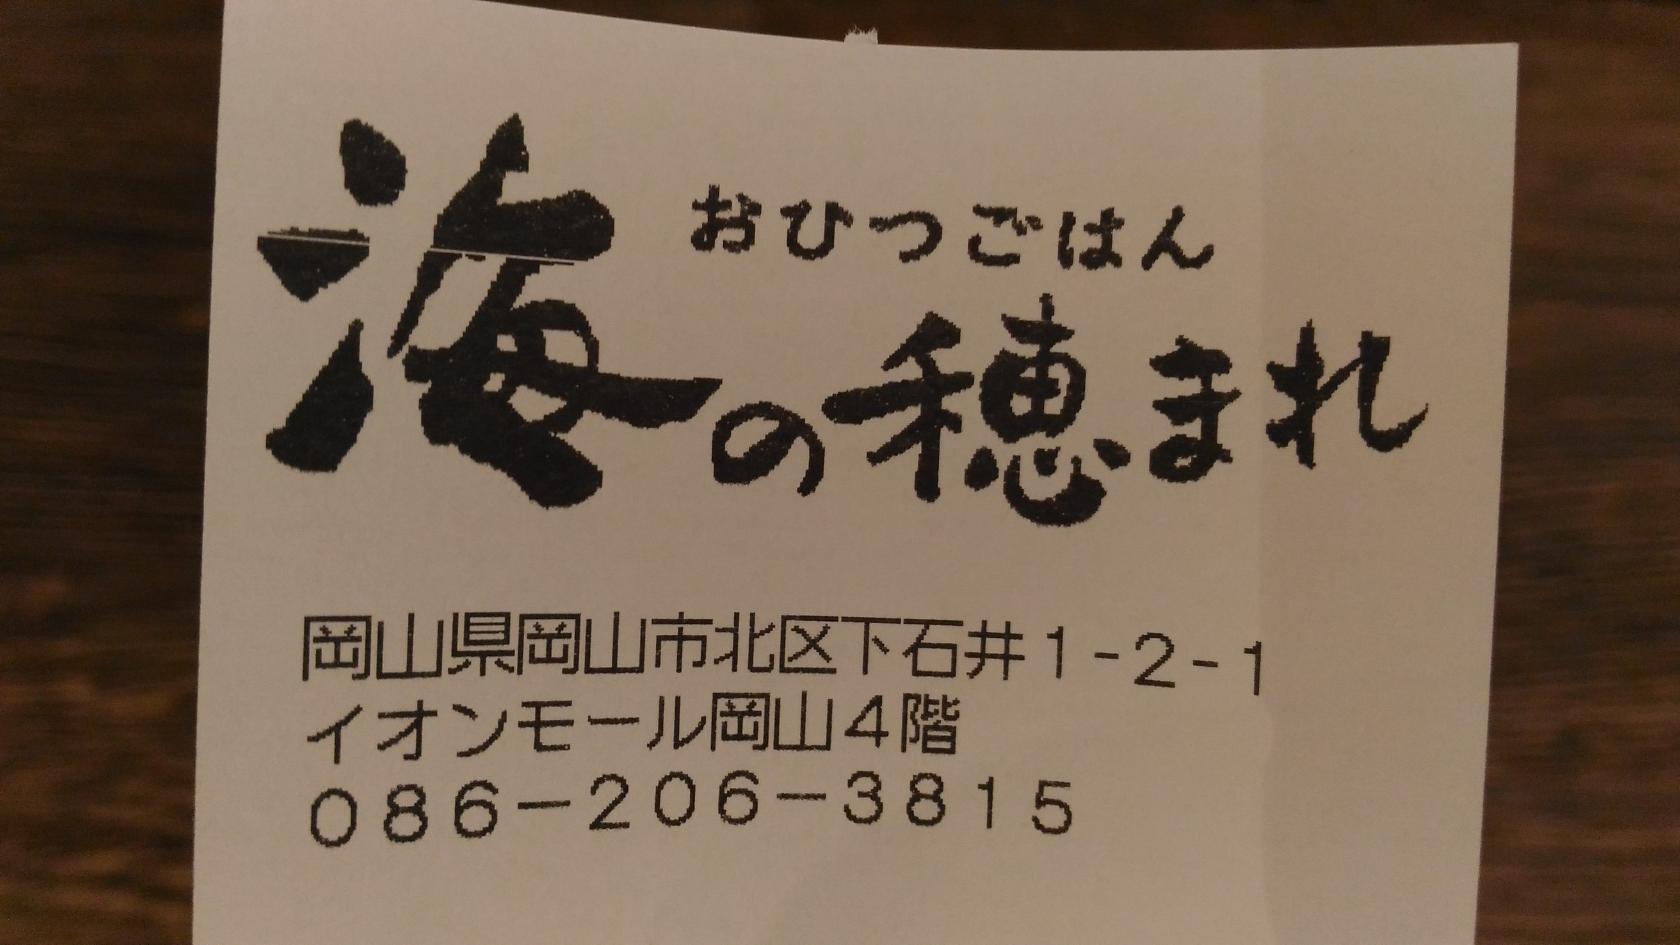 おひつごはん
海の穂まれ
岡山県岡山市北区下石井1-2-1
イオンモール岡山4階
086-206-3815